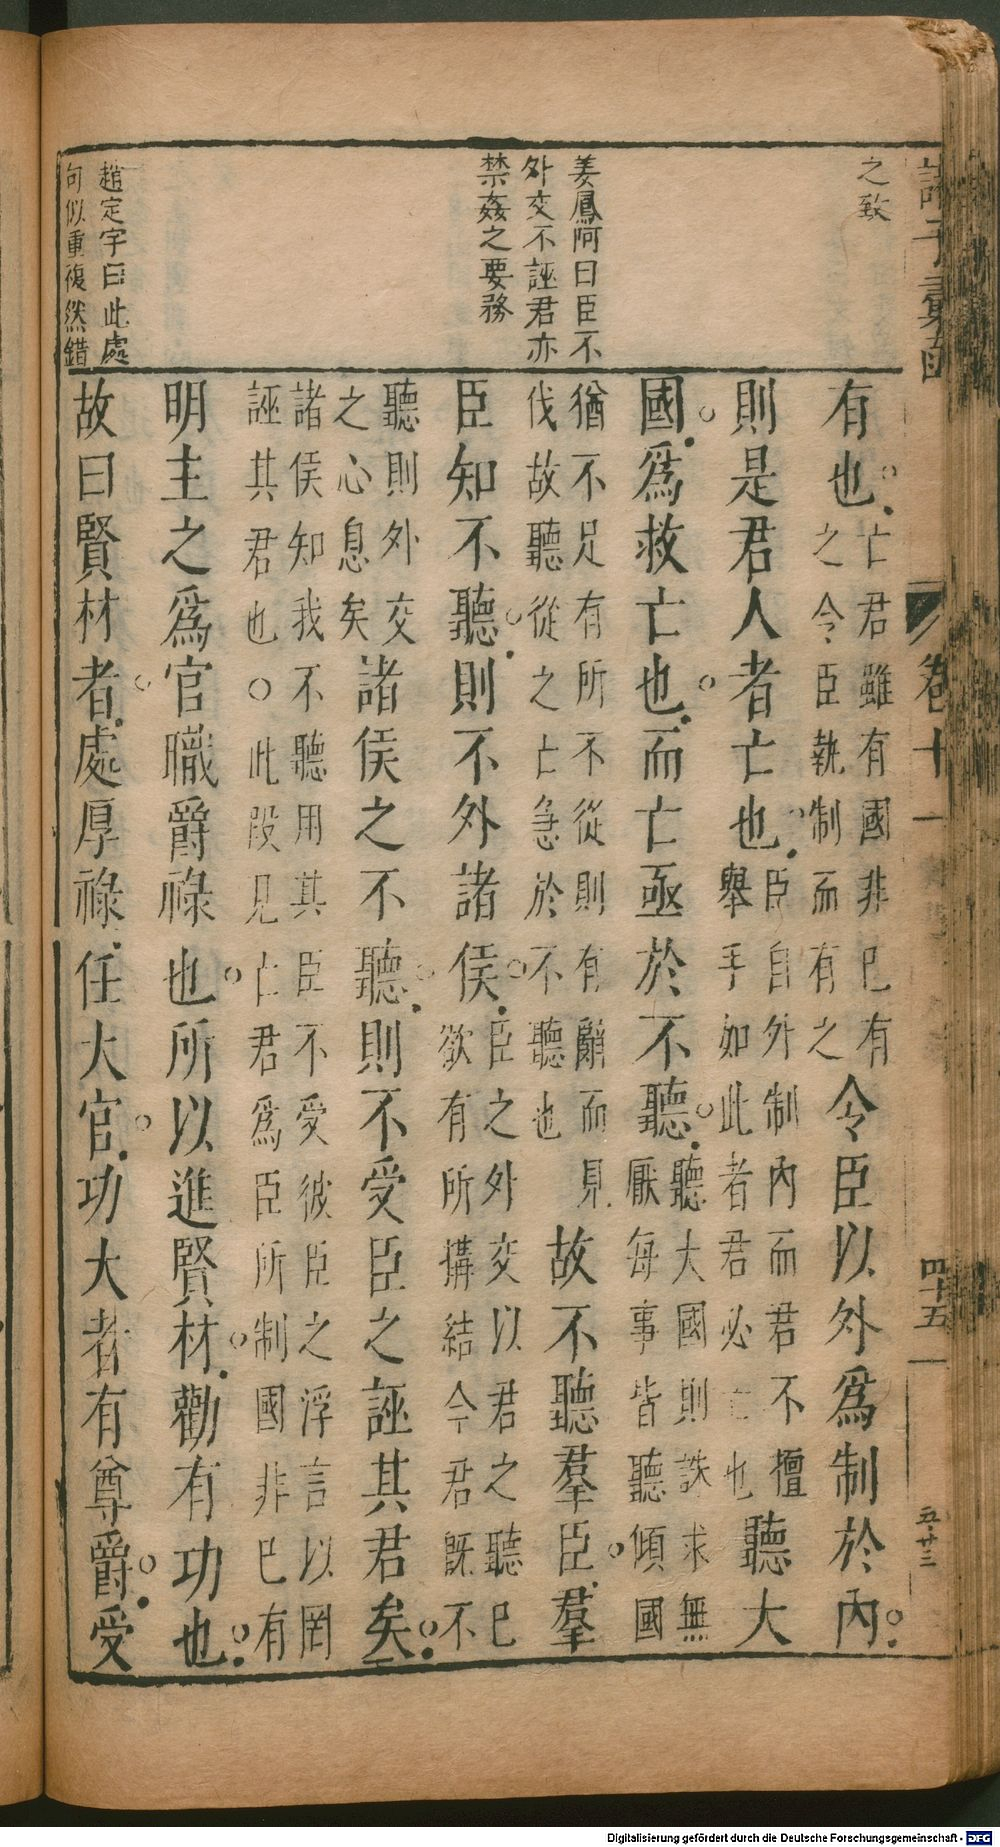 之致
姜鳳阿曰臣不
外交不誣君亦
禁姦之要務
趙定宇曰此處
句似重複然錯
有也亡君雖有國非巳有之令臣執制而有之令臣以外爲制於內
則是君人者亡也臣自外制內而君不擅舉手如此者君必亡也聽大
國爲救亡也而亡亟於不聽聽大國則誅求無厭每事皆聽傾國
猶不足有所不從則有辭而見伐故聽從之亡急於不聽也故不聽羣臣羣
臣知不聽則不外諸侯臣之外交以君之聽巳欲有所搆結今君既不
聽則外交之心息矣諸侯之不聽則不受臣之誣其君矣
諸侯知我不聽用其臣不受彼臣之浮言以罔誣其君也○此段見亡君爲臣所制國非巳有
明主之爲官職爵祿也所以進賢材勸有功也
故曰賢材者處厚祿任大官功大者有尊爵受
卷十一
四十五
五廿三
Digitalisierung gefördert durch die Deutsche Forschungsgemeinschaft - DFG